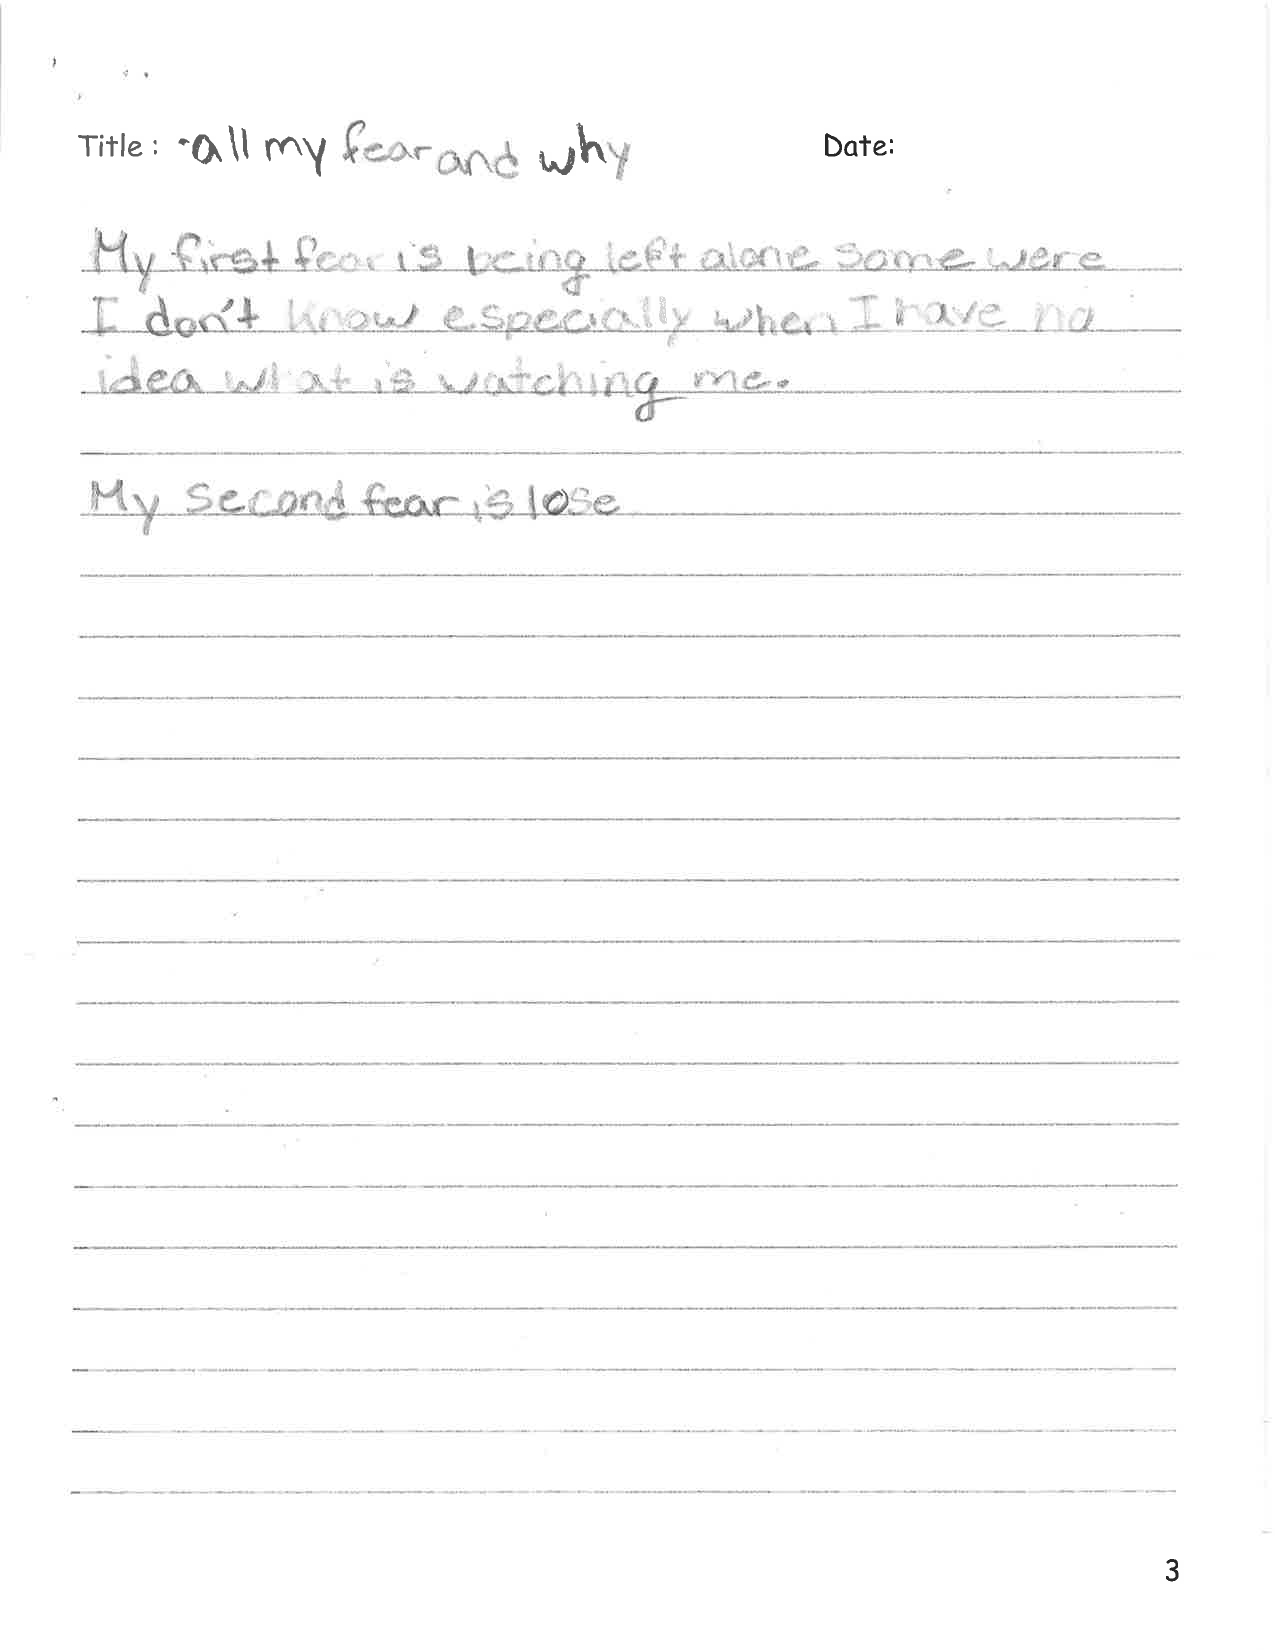 Title : all my fear and why Date:
My first fear is being left alone some were
I don't know especially when I have no
idea what is watching me.
My second fear is lose
3